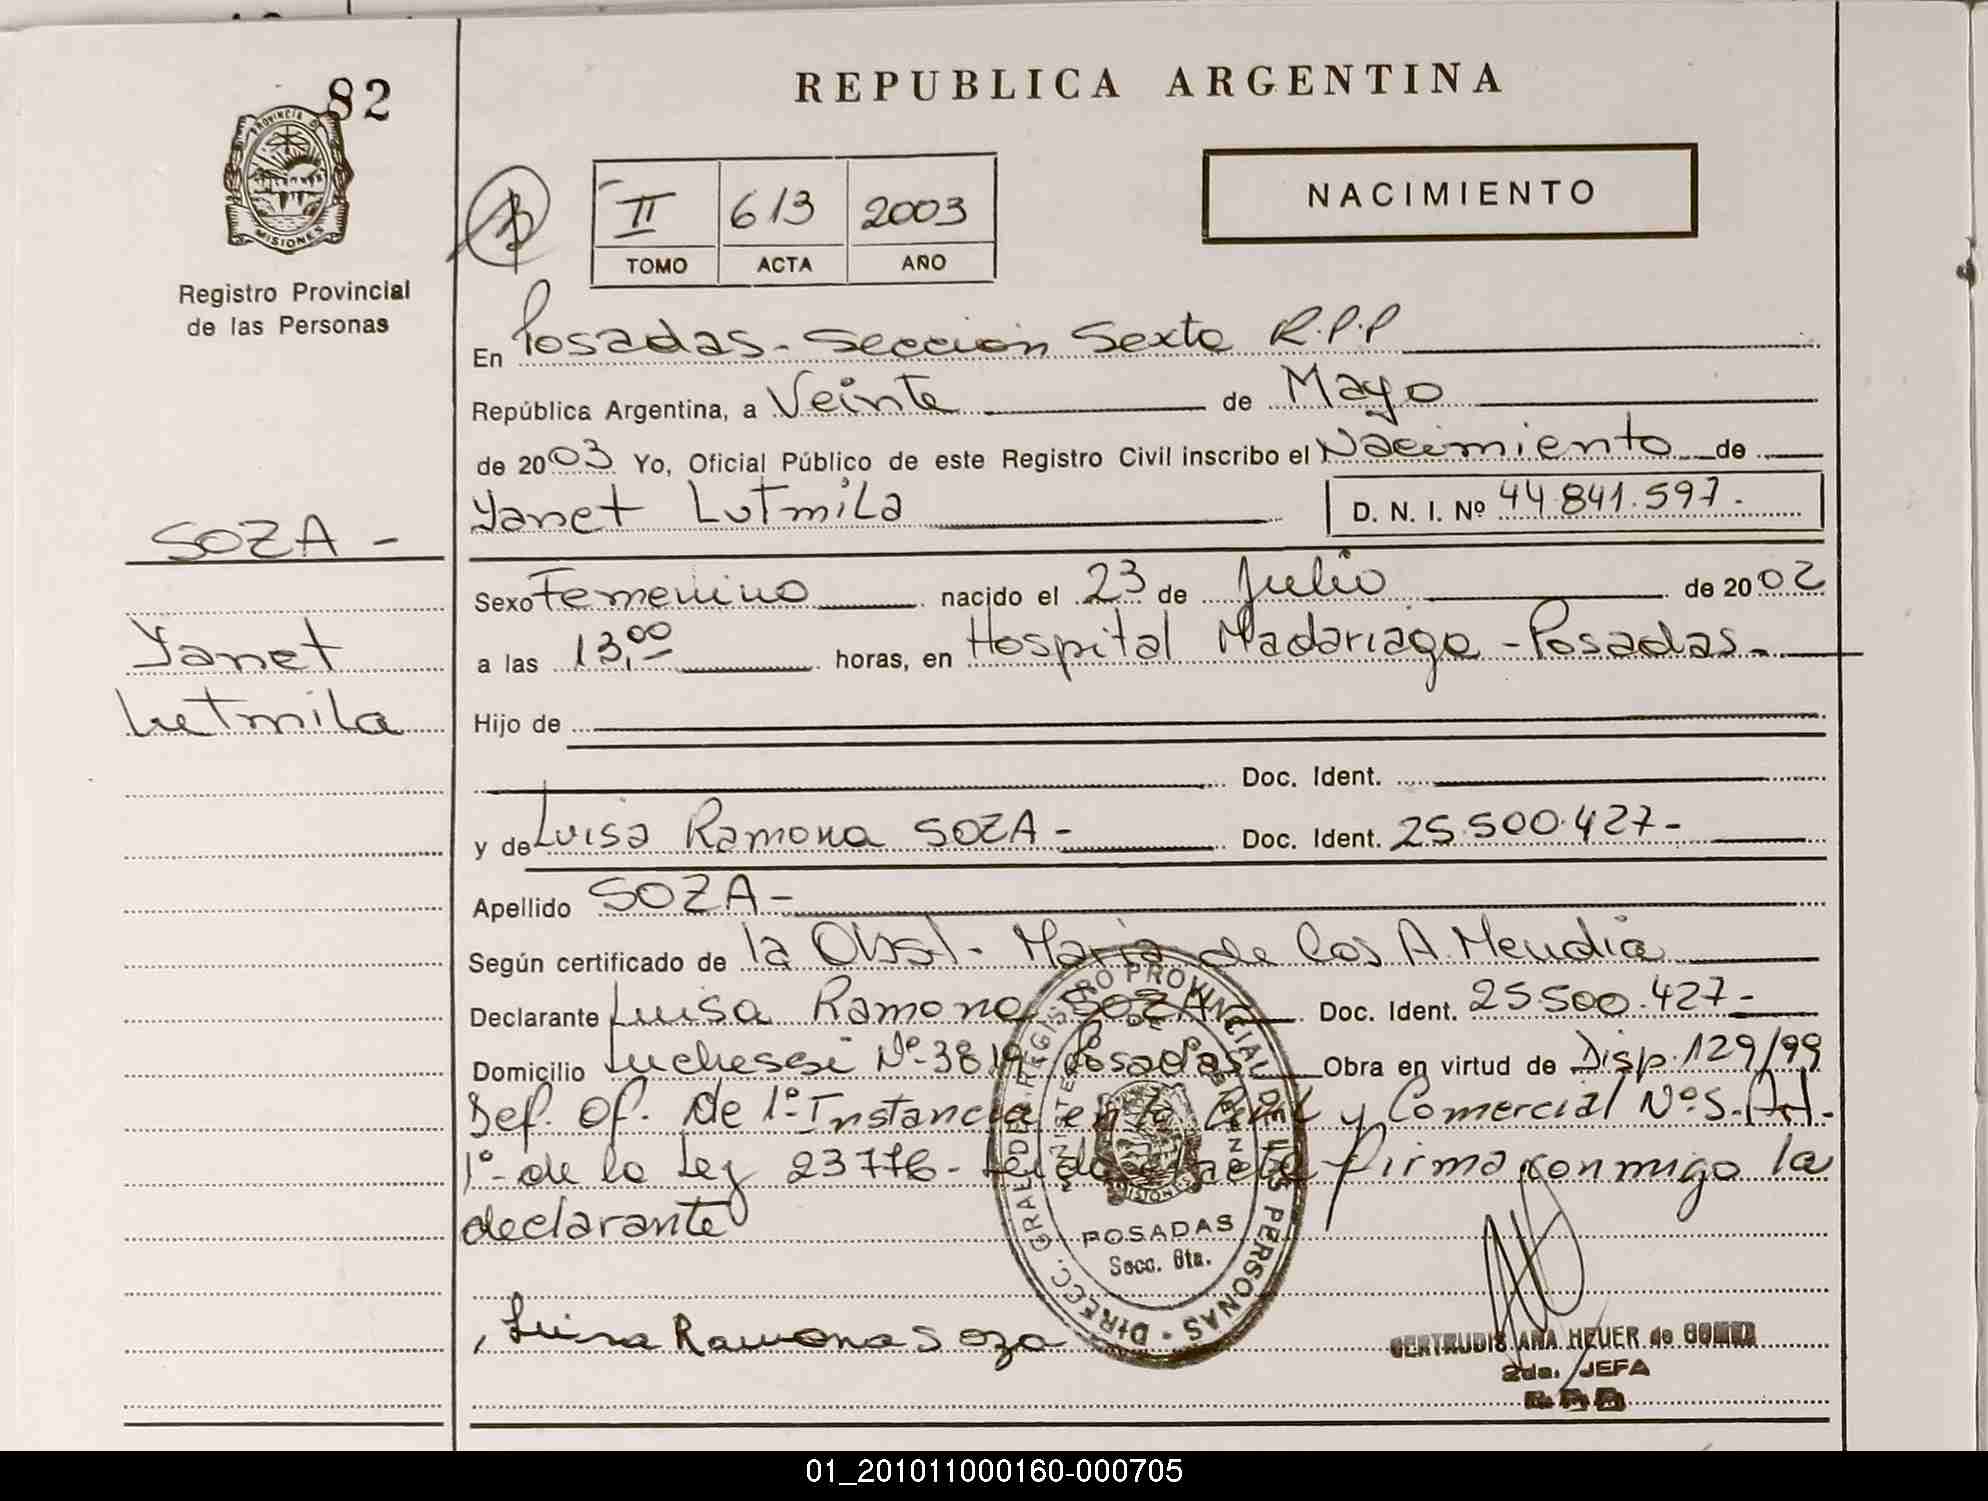 82
REPUBLICA ARGENTINA
PROVINCIA DE MISIONES
Registro Provincial
de las Personas
II 613 2003
TOMO ACTA AÑO
NACIMIENTO
En Posadas - Sección Sexta R.P.P
República Argentina, a Veinte de Mayo
de 2003 Yo, Oficial Público de este Registro Civil inscribo el Nacimiento de
Yanet Lutmila D. N. I. Nº 44.841.597.-
SOZA -
Yanet
Lutmila
Sexo Femenino nacido el 23 de Julio de 2002
a las 13,00 horas, en Hospital Madariaga - Posadas.-
Hijo de
Doc. Ident.
y de Luisa Ramona SOZA - Doc. Ident. 25.500.427-
Apellido SOZA -
Según certificado de la Obst. María de los A. Mendia
Declarante Luisa Ramona SOZA Doc. Ident. 25500.427-
Domicilio Luchessi Nº 3819 Posadas Obra en virtud de Disp. 129/99
Def. Of. de 1º Instancia en lo Civil y Comercial Nº 5. Art.
1º- de la Ley 23776- Leída el acta firma conmigo la
declarante
DIRECC. GRAL. DEL REGISTRO PROVINCIAL DE LAS PERSONAS
MISIONES
POSADAS
Secc. 6ta.
Luisa Ramona Soza
GERTRUDIS ANA HEUER de
2da. JEFA
01_201011000160-000705